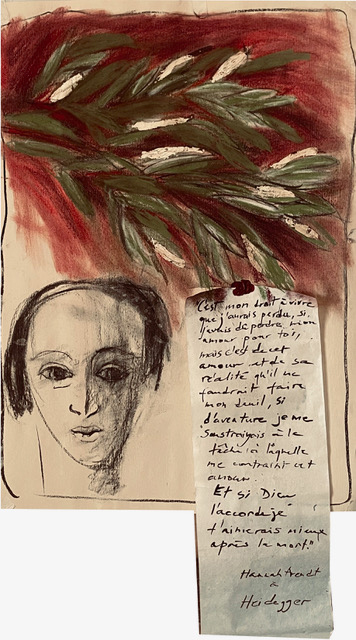 "C'est mon droit à vivre
que j'aurais perdu, si
j'avais dû perdre mon
amour pour toi,
mais c'est de cet
amour et de sa
réalité qu'il me
faudrait faire
mon deuil, si
d'aventure je me
soustrayais à la
tâche à laquelle
me contraint cet
amour.
Et si Dieu
l'accorde je
t'aimerais mieux
après la mort."
Hannah Arendt
à
Heidegger